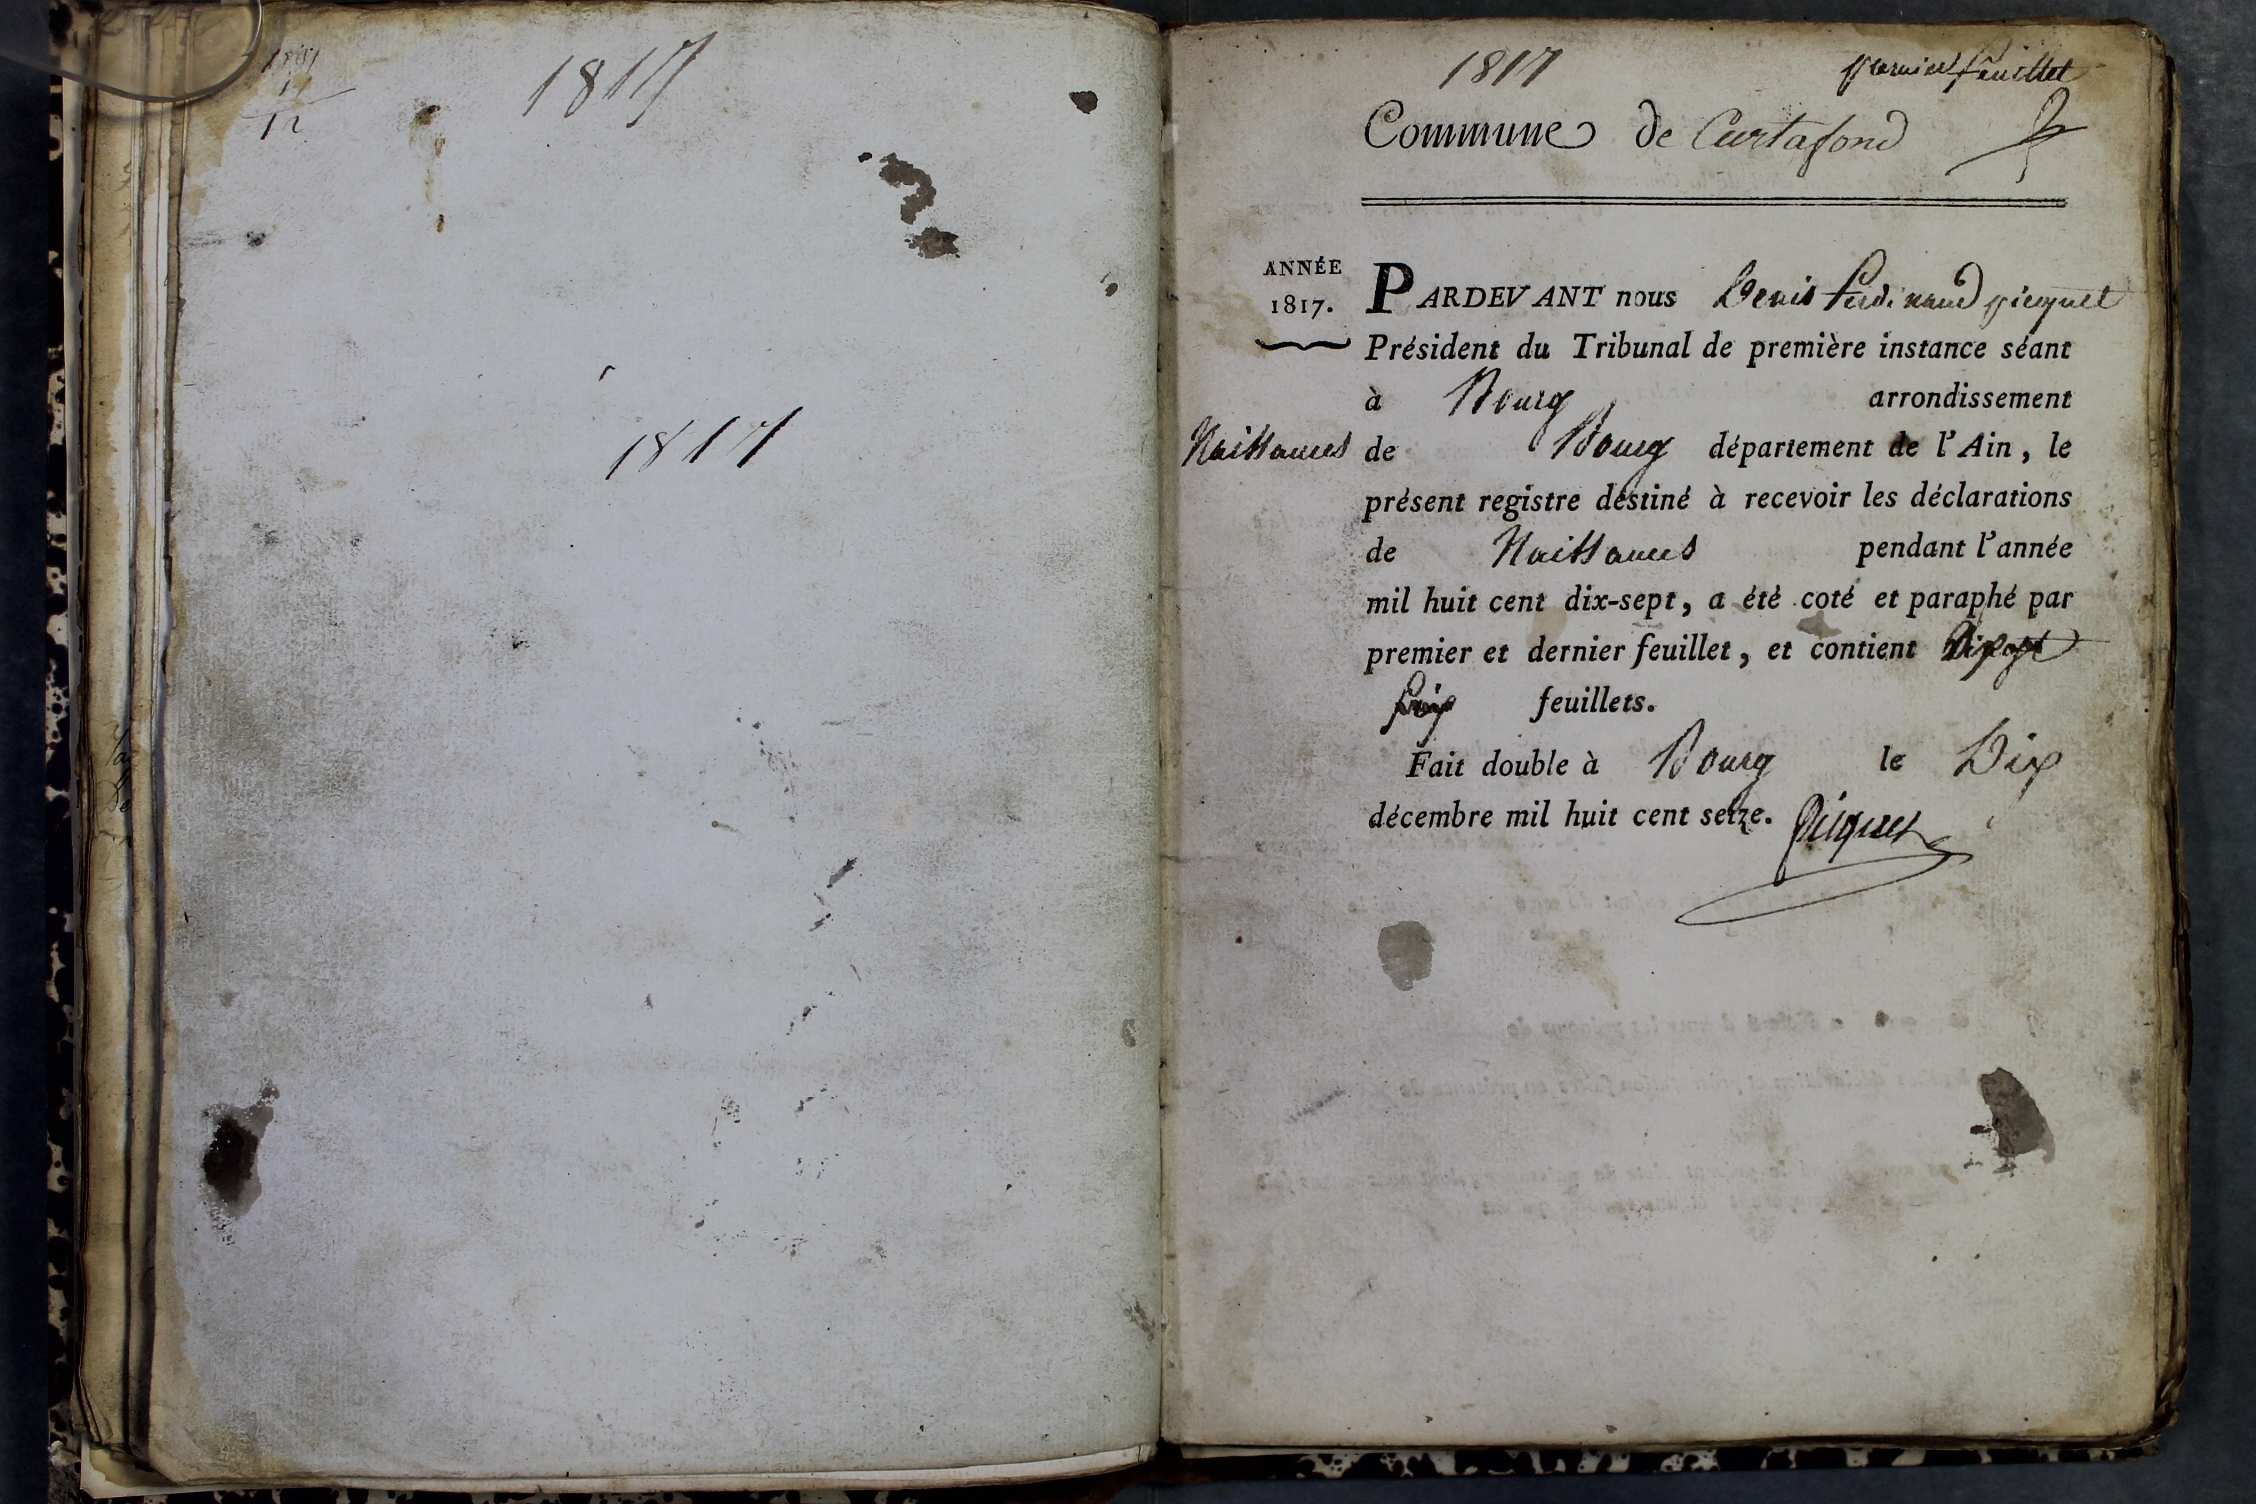 1817
12
1817
1817
premier feuillet
Commune de Curtafond
ANNÉE
1817.
Naissances
PARDEVANT nous Denis ferdinand picquet
Président du Tribunal de première instance séant
à Bourg arrondissement
de Bourg département de l'Ain, le
présent registre destiné à recevoir les déclarations
de Naissances pendant l'année
mil huit cent dix-sept, a été coté et paraphé par
premier et dernier feuillet, et contient
feuillets.
Fait double à Bourg le Dix
décembre mil huit cent seize. Picquet